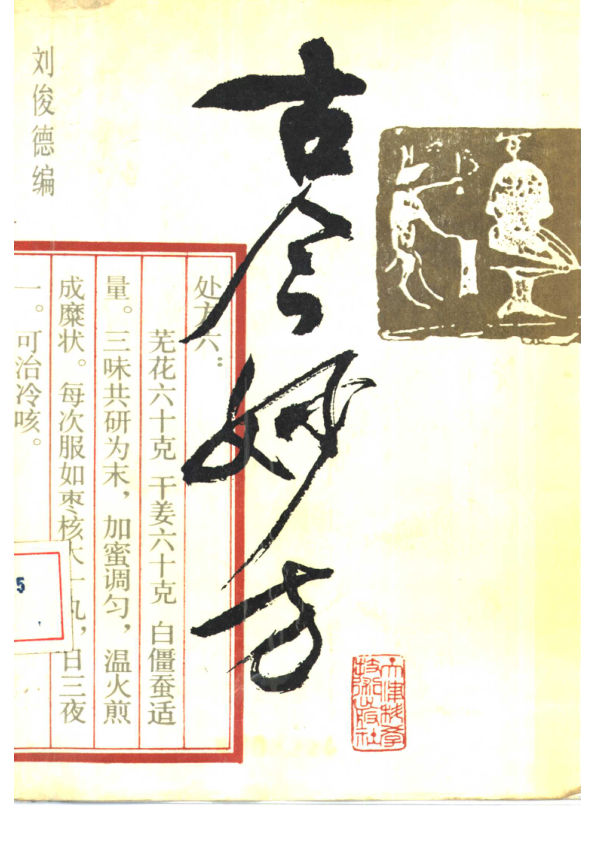 刘俊德编
古今妙方
处方六：
芫花六十克 干姜六十克 白僵蚕适
量。三味共研为末，加蜜调匀，温火煎
成糜状。每次服如枣核大一丸，日三夜
一。可治冷咳。
5
天津科学
技术出版社